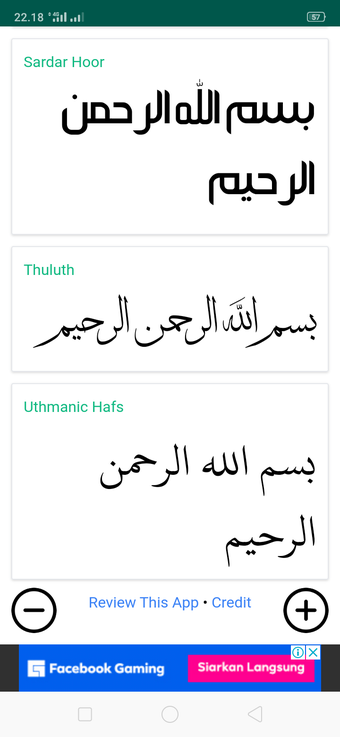 22.18
57
Sardar Hoor
بسم الله الرحمن
الرحيم
Thuluth
بسم الله الرحمن الرحيم
Uthmanic Hafs
بسم الله الرحمن
الرحيم
Review This App • Credit
Facebook Gaming
Siarkan Langsung